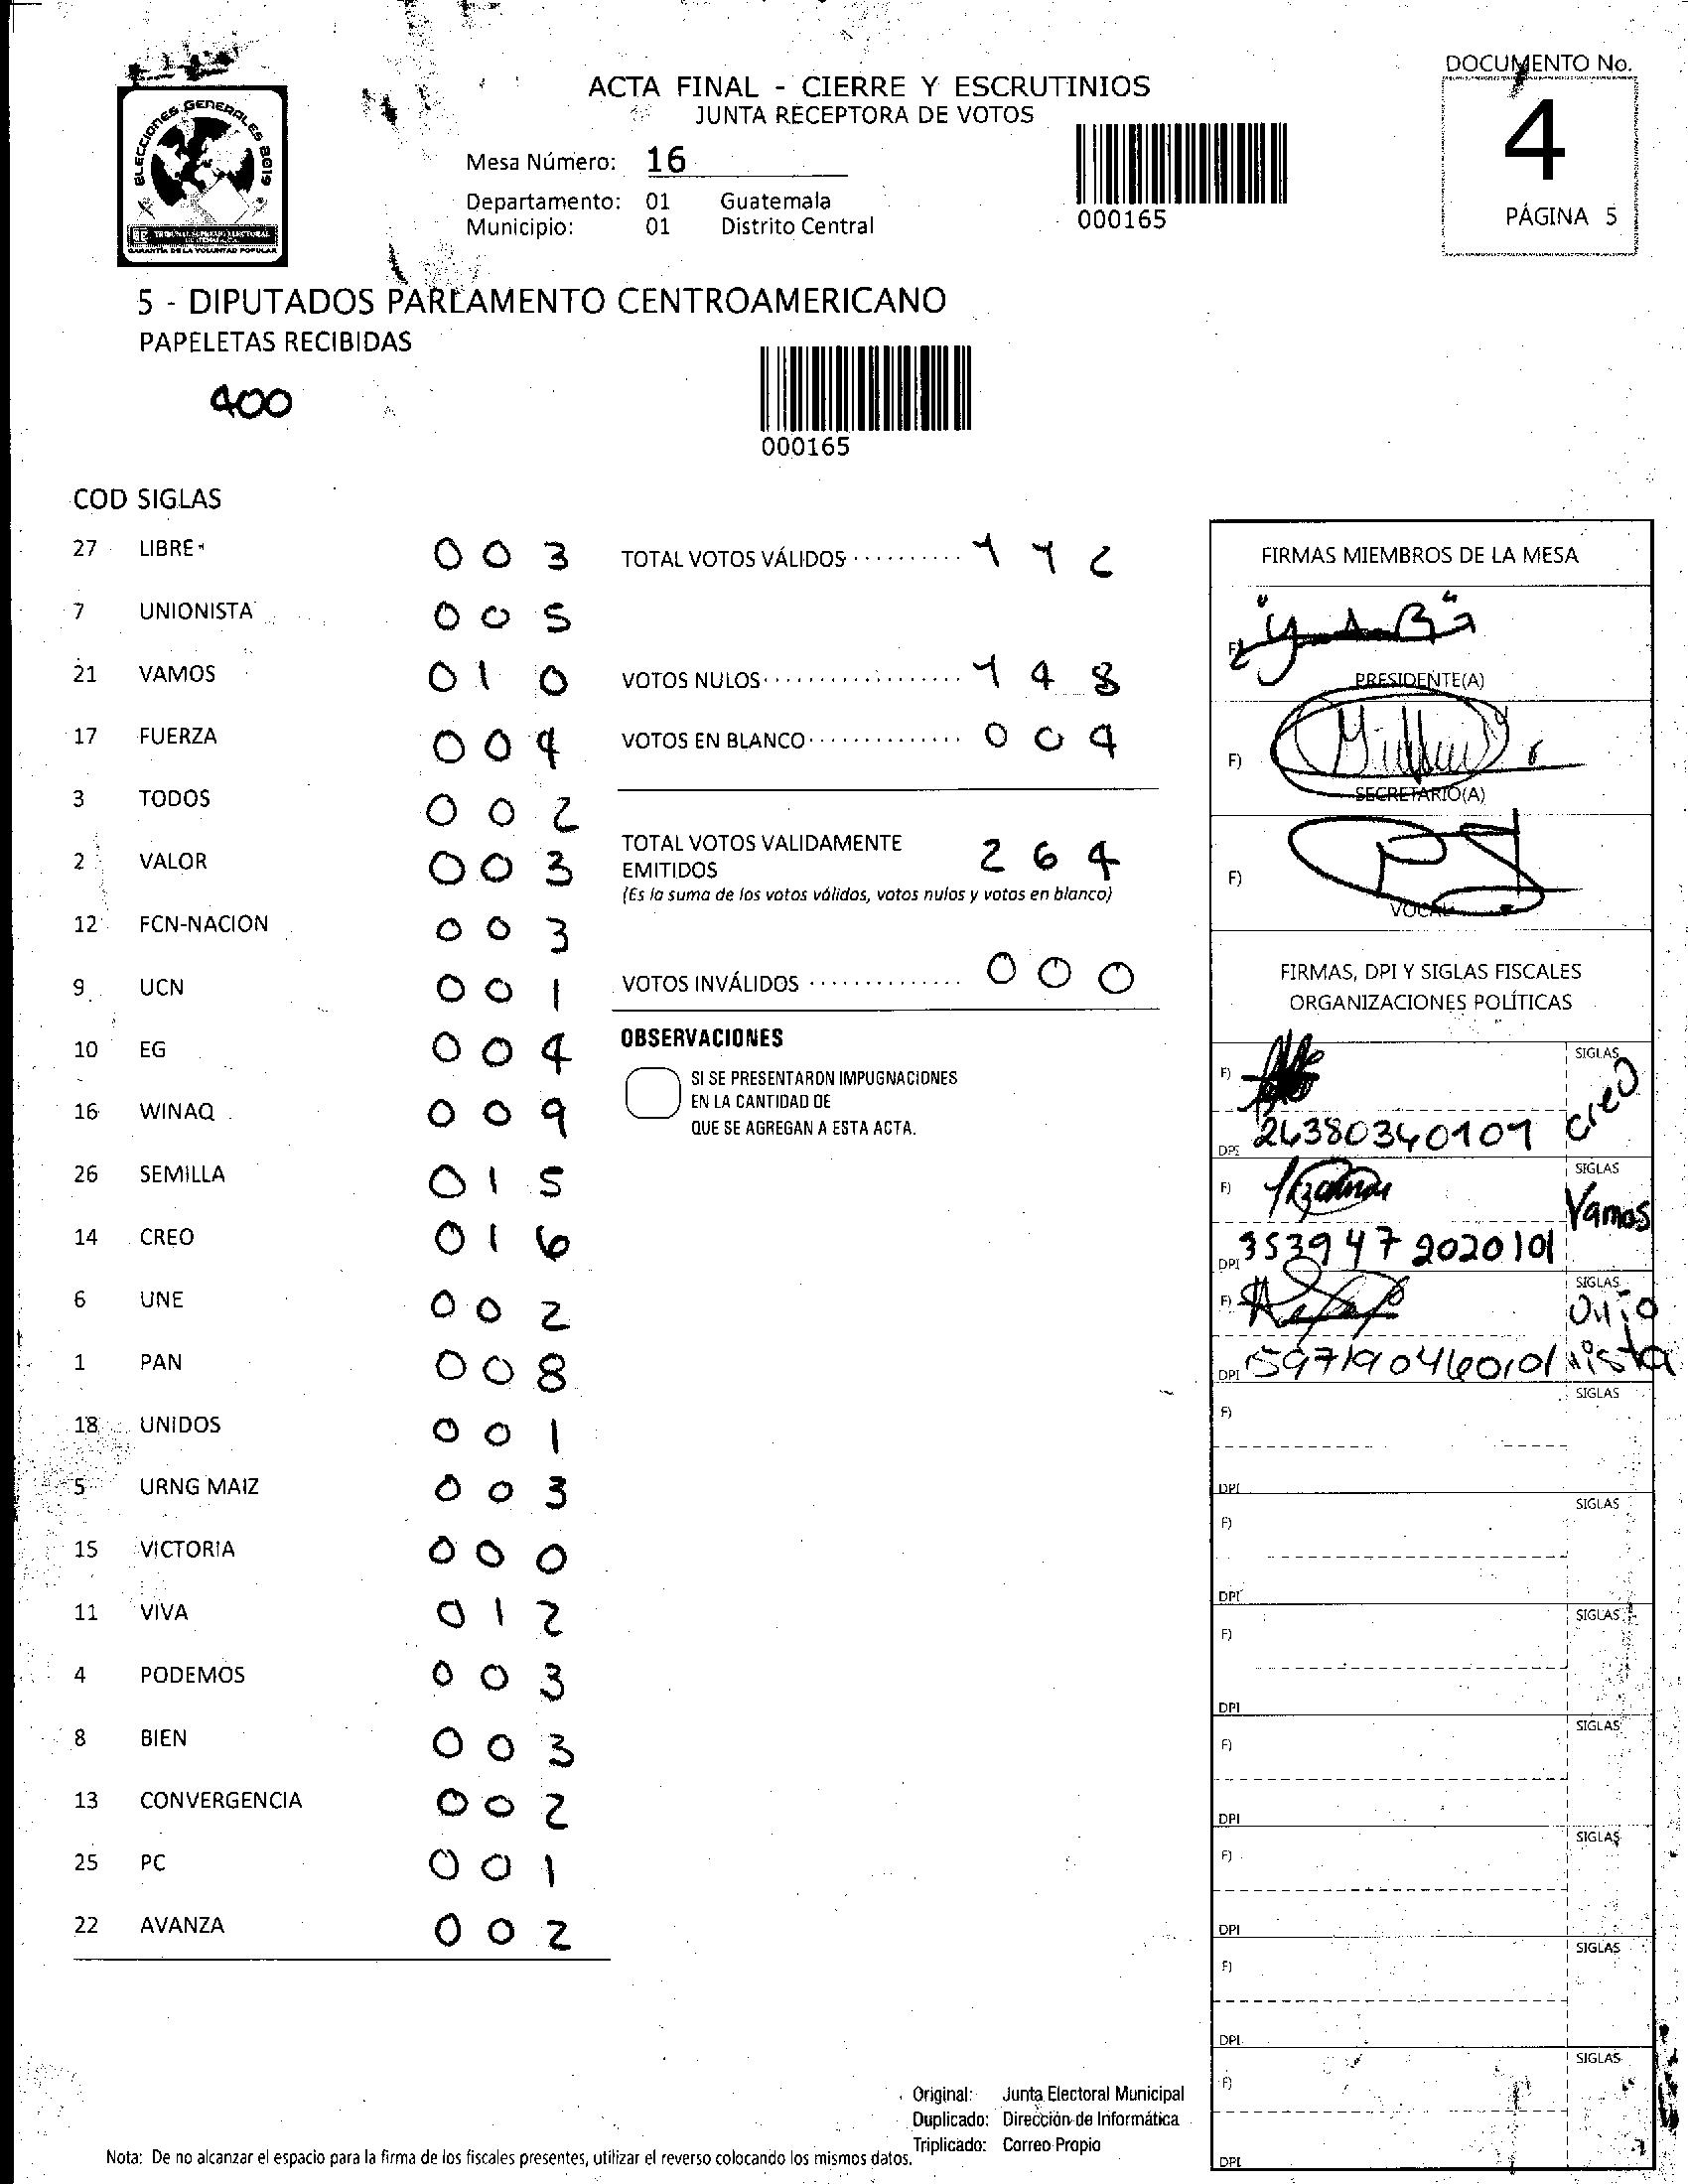 DOCUMENTO No.
4
PÁGINA 5
ELECCIONES GENERALES 2019
GARANTÍA DE LA VOLUNTAD POPULAR
ACTA FINAL - CIERRE Y ESCRUTINIOS
JUNTA RECEPTORA DE VOTOS
Mesa Número: 16
Departamento: 01 Guatemala
Municipio: 01 Distrito Central
000165
5 - DIPUTADOS PARLAMENTO CENTROAMERICANO
PAPELETAS RECIBIDAS
400
000165
COD SIGLAS
27 LIBRE 0 0 3
7 UNIONISTA 0 0 5
21 VAMOS 0 1 0
17 FUERZA 0 0 4
3 TODOS 0 0 2
2 VALOR 0 0 3
12 FCN-NACION 0 0 3
9 UCN 0 0 1
10 EG 0 0 4
16 WINAQ 0 0 9
26 SEMILLA 0 1 5
14 CREO 0 1 6
6 UNE 0 0 2
1 PAN 0 0 8
18 UNIDOS 0 0 1
5 URNG MAIZ 0 0 3
15 VICTORIA 0 0 0
11 VIVA 0 1 2
4 PODEMOS 0 0 3
8 BIEN 0 0 3
13 CONVERGENCIA 0 0 2
25 PC 0 0 1
22 AVANZA 0 0 2
TOTAL VOTOS VÁLIDOS 1 1 2
VOTOS NULOS 1 4 8
VOTOS EN BLANCO 0 0 4
TOTAL VOTOS VALIDAMENTE
EMITIDOS 2 6 4
(Es la suma de los votos válidos, votos nulos y votos en blanco)
VOTOS INVÁLIDOS 0 0 0
OBSERVACIONES
SI SE PRESENTARON IMPUGNACIONES
EN LA CANTIDAD DE
QUE SE AGREGAN A ESTA ACTA.
FIRMAS MIEMBROS DE LA MESA
F)
PRESIDENTE(A)
F)
SECRETARIO(A)
F)
VOCAL
FIRMAS, DPI Y SIGLAS FISCALES
ORGANIZACIONES POLÍTICAS
F) SIGLAS
creo
DPI 26380340101
F) SIGLAS
Vamos
DPI 353947 2020101
F) SIGLAS
Unio
DPI 597190460101 nista
F) SIGLAS
DPI
F) SIGLAS
DPI
F) SIGLAS
DPI
F) SIGLAS
DPI
F) SIGLAS
DPI
F) SIGLAS
DPI
F) SIGLAS
DPI
Original: Junta Electoral Municipal
Duplicado: Dirección de Informática
Triplicado: Correo Propio
Nota: De no alcanzar el espacio para la firma de los fiscales presentes, utilizar el reverso colocando los mismos datos.